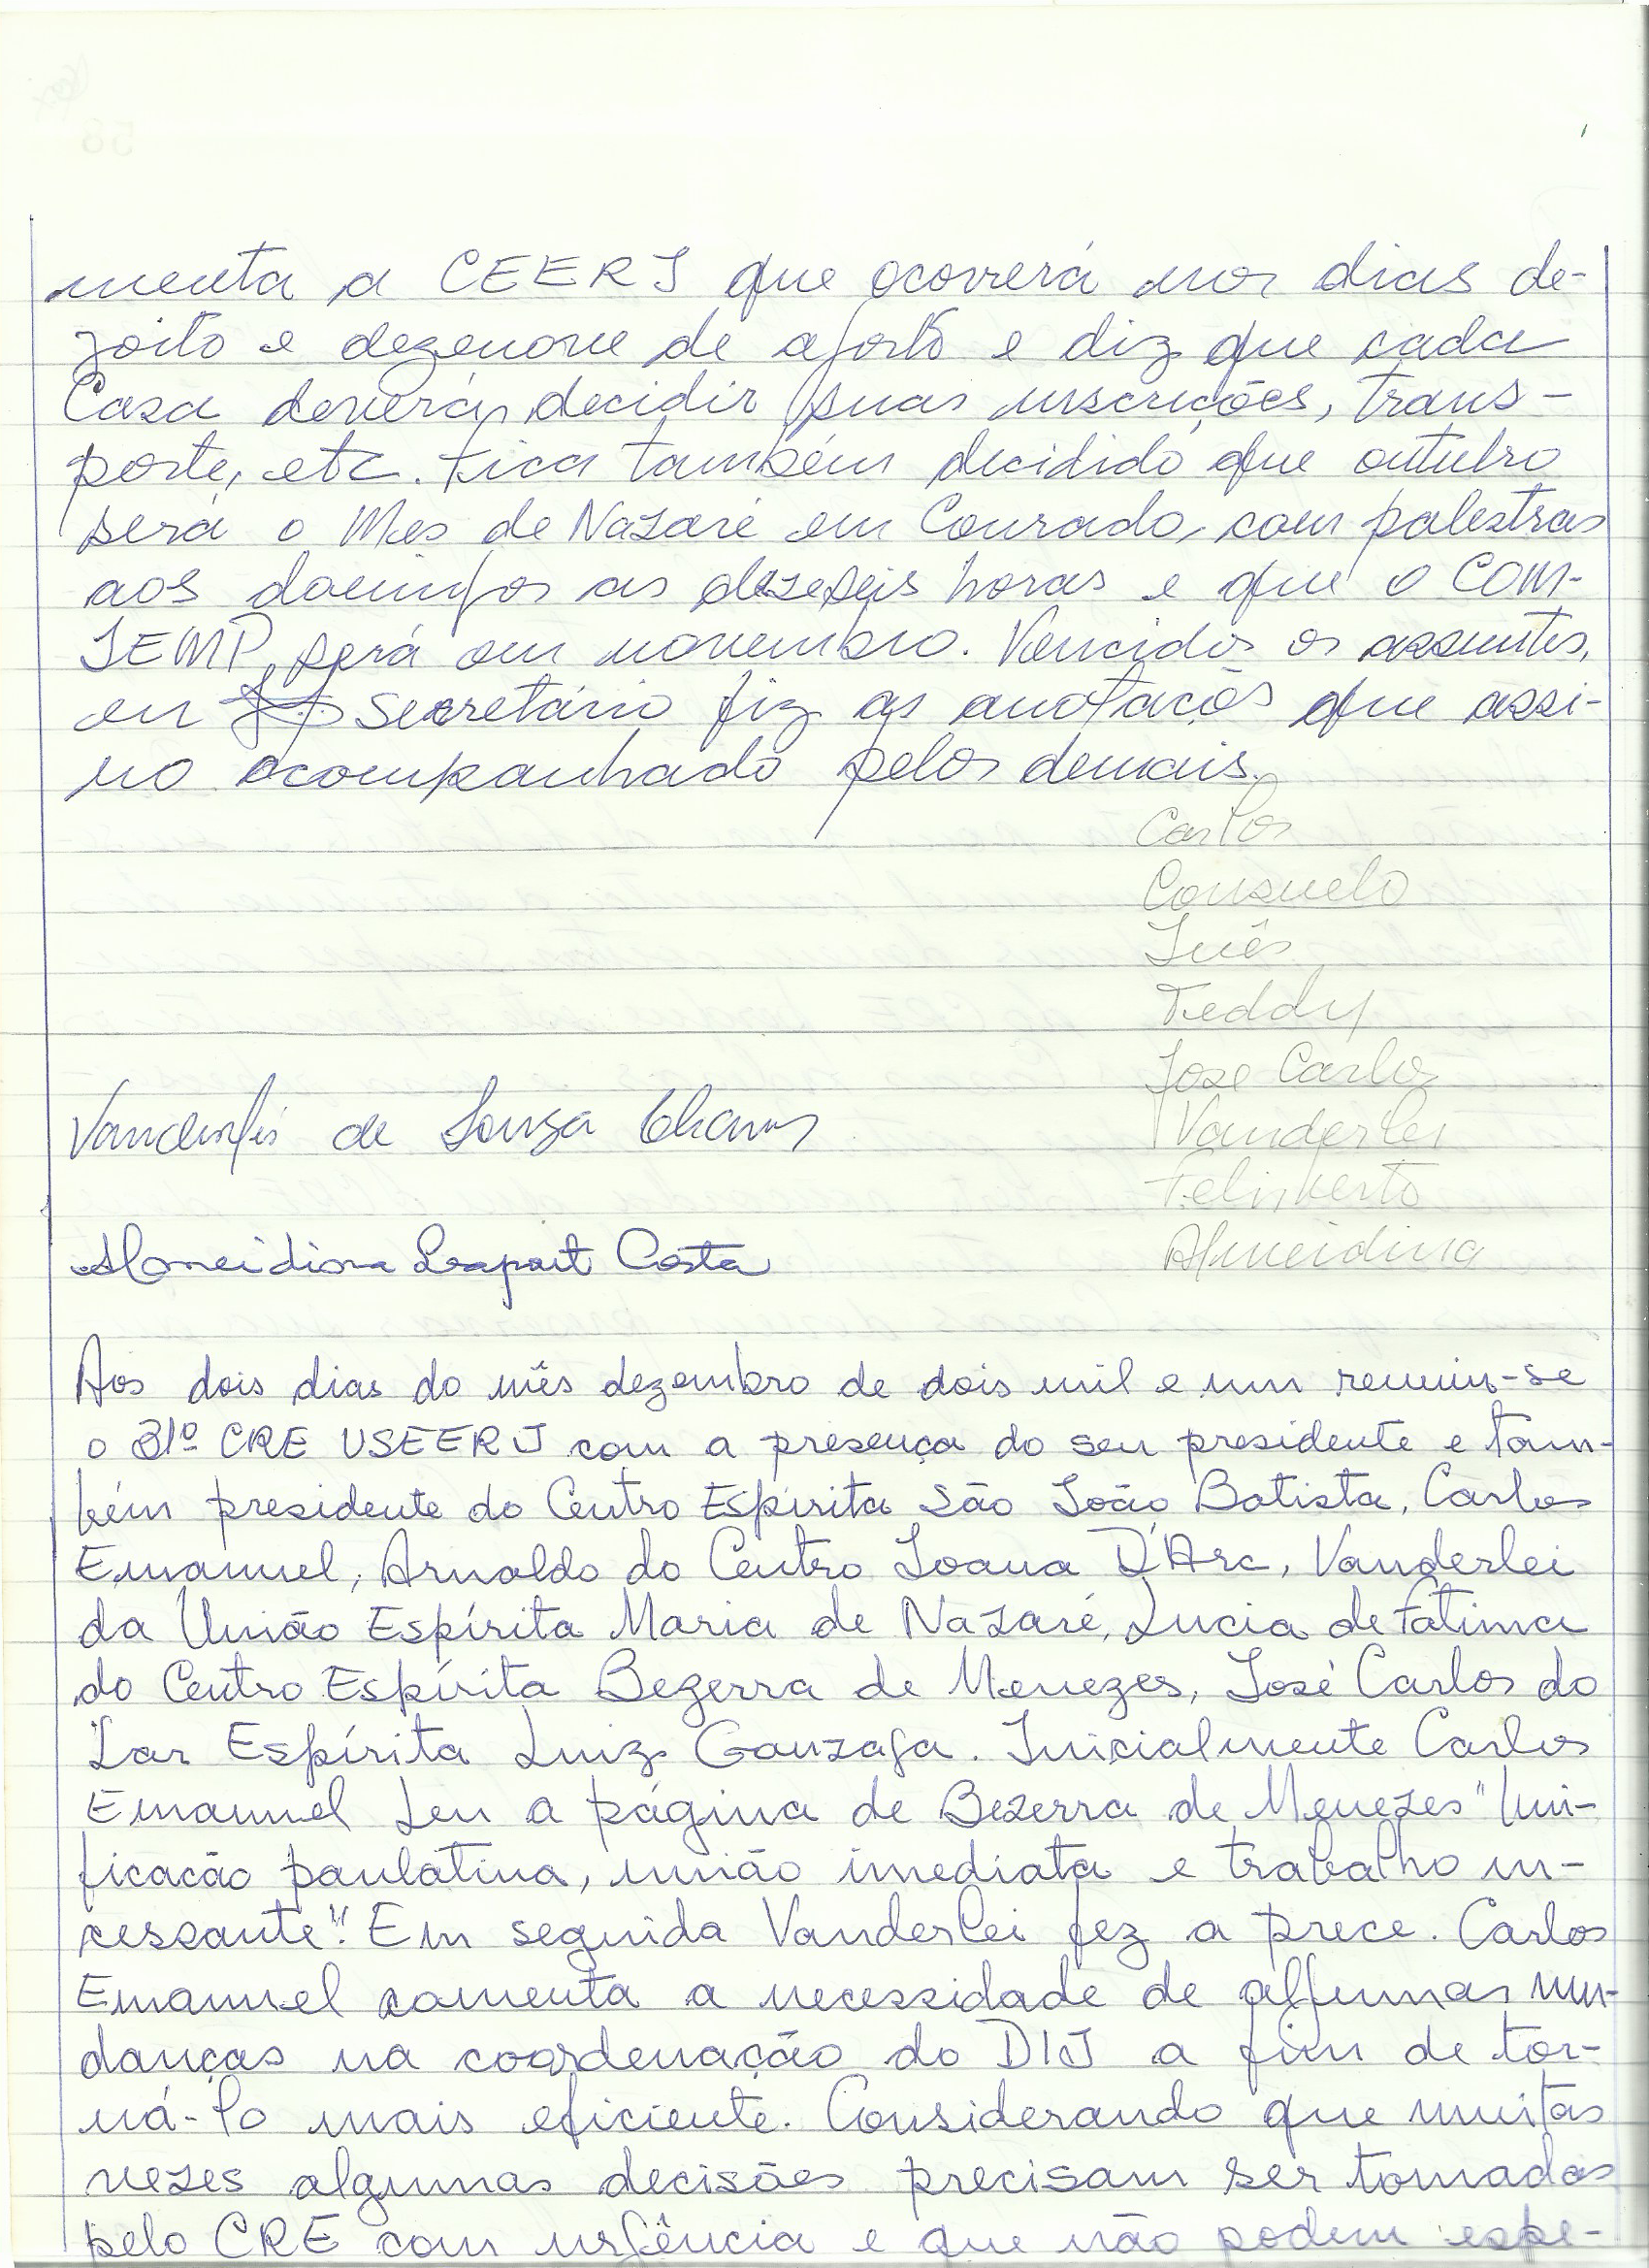 menta a CEERJ que ocorrerá nos dias de-
zoito e dezenove de agosto e diz que cada
Casa deverá decidir suas inscrições, trans-
porte, etc. Fica também decidido que outubro
será o Mes de Nazaré em Conrado, com palestras
aos domingos as dezeseis horas e que o COM-
JEMP será em novembro. Vencidos os assuntos,
eu secretário fiz as anotacões que assi-
no acompanhado pelos demais.
Carlos
Consuelo
Inês
Teddy
Jose Carlos
Vanderlei
Felisberto
Almeidina
Vanderlei de Souza
Almeidina Costa
Aos dois dias do mês dezembro de dois mil e um reuniu-se
o 31º CRE USEERJ com a presença do seu presidente e tam-
bém presidente do Centro Espírita São João Batista, Carlos
Emanuel, Arnaldo do Centro Joana D'Arc, Vanderlei
da União Espírita Maria de Nazaré, Lucia de Fátima
do Centro Espírita Bezerra de Menezes, José Carlos do
Lar Espírita Luiz Gonzaga. Inicialmente Carlos
Emanuel leu a página de Bezerra de Menezes "Uni-
ficacão paulatina, união imediata e trabalho in-
cessante". Em seguida Vanderlei fez a prece. Carlos
Emanuel comenta a necessidade de algumas mu-
danças na coordenação do DIJ a fim de tor-
ná-lo mais eficiente. Considerando que muitas
vezes algumas decisões precisam ser tomadas
pelo CRE com urgência e que não podem espe-